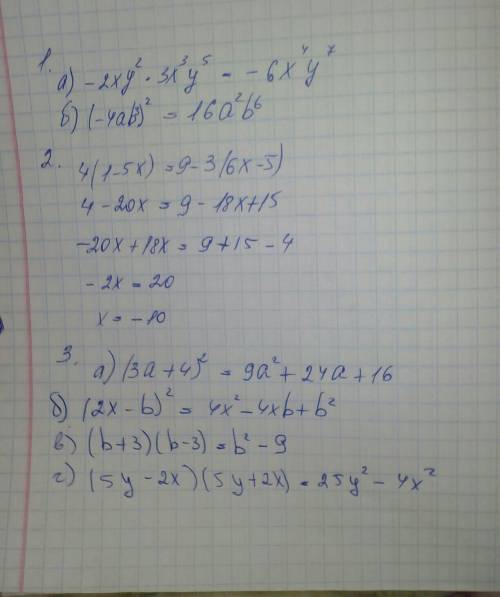 1.
а) -2xy² · 3x³y⁵ = -6x⁴y⁷
б) (-4ab³)² = 16a²b⁶
2. 4(1-5x) = 9-3(6x-5)
4-20x = 9-18x+15
-20x+18x = 9+15-4
-2x = 20
x = -10
3.
а) (3a+4)² = 9a²+24a+16
б) (2x-b)² = 4x²-4xb+b²
в) (b+3)(b-3) = b²-9
г) (5y-2x)(5y+2x) = 25y²-4x²